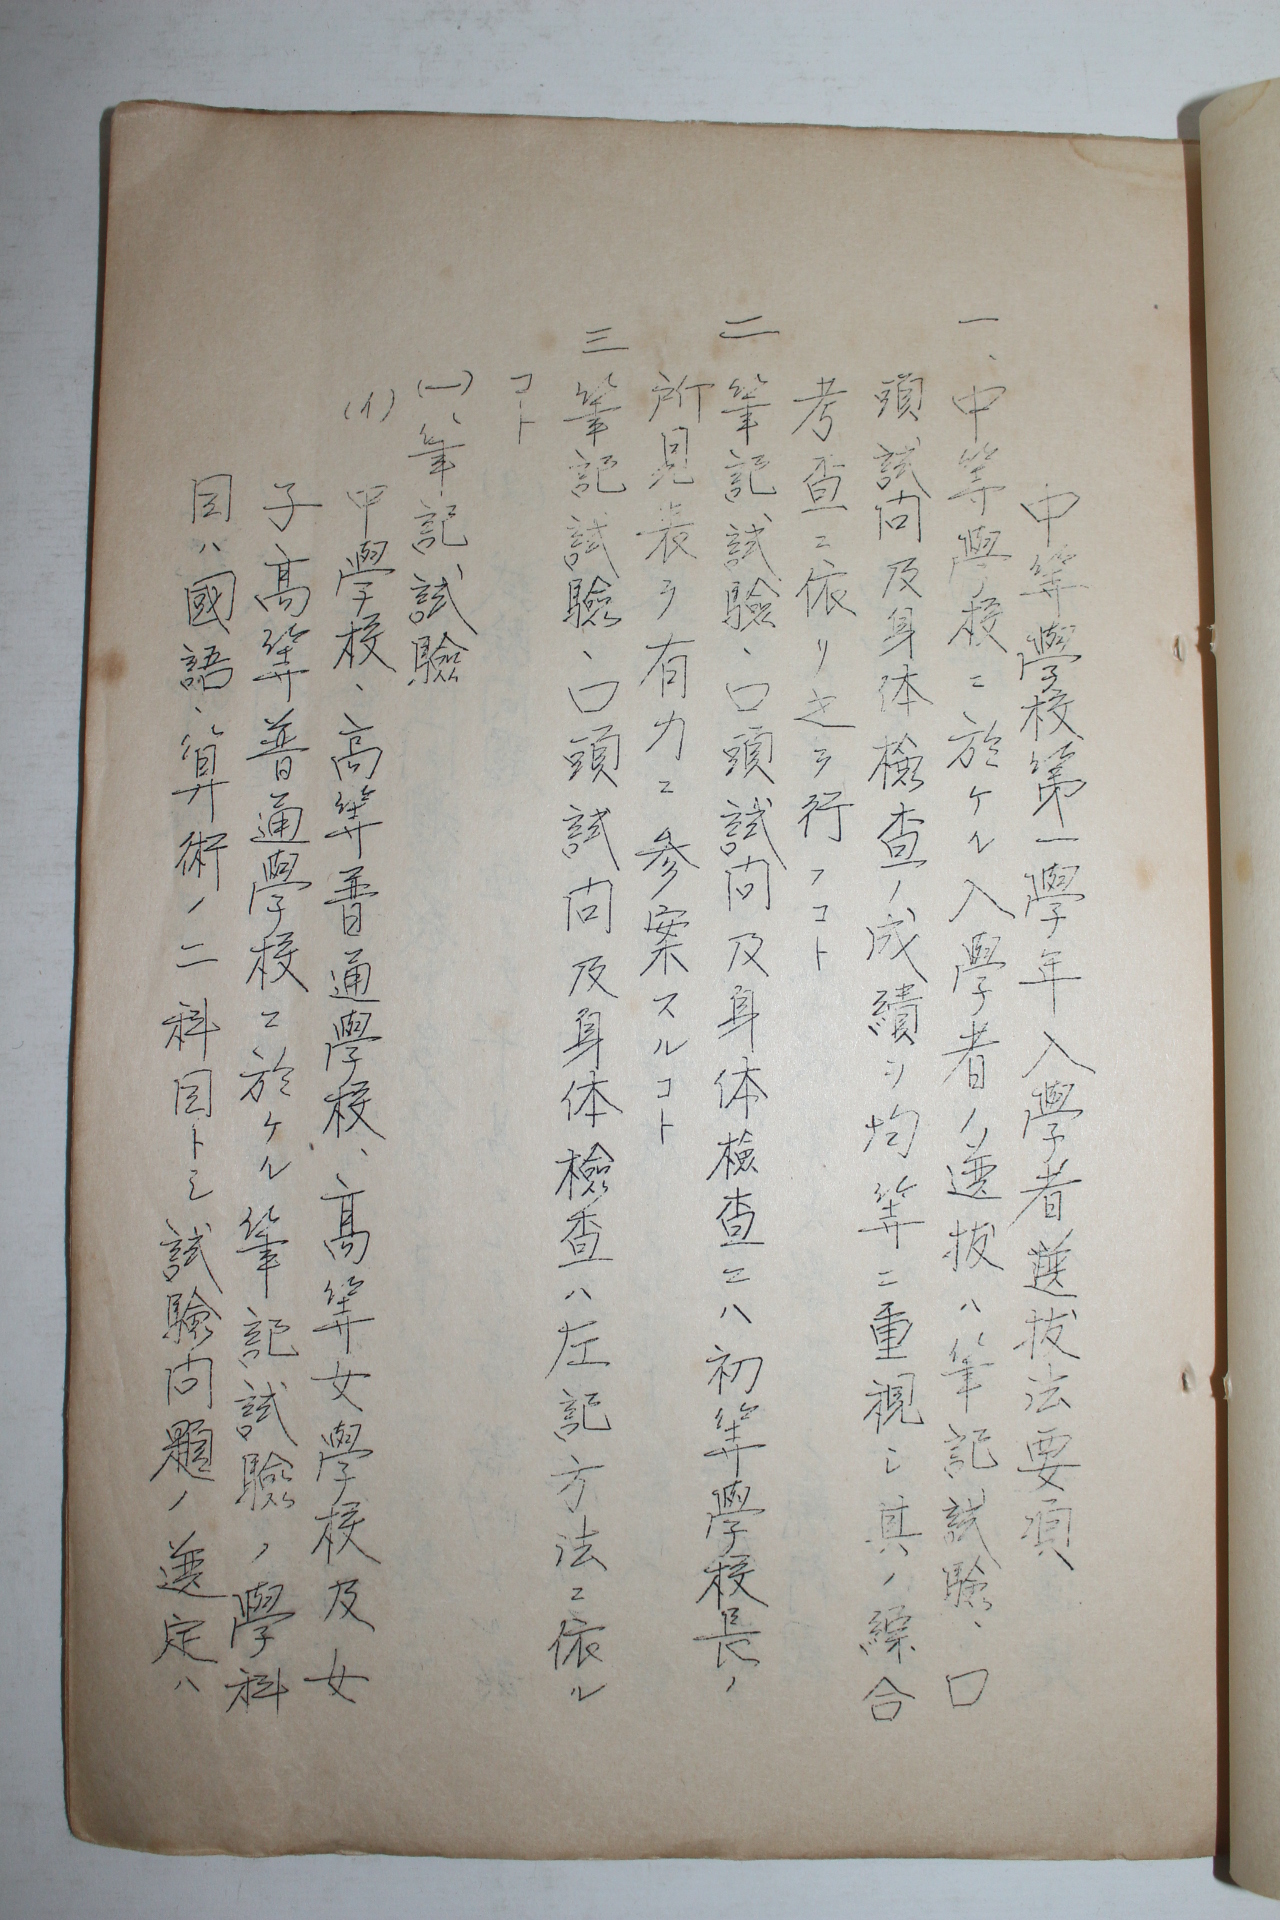 中等學校第一學年入學者ノ選拔法要項
一、中等學校ニ於ケル入學者ノ選拔ハ筆記試驗、口
頭試問及身体檢查ノ成績ヲ均等ニ重視シ其ノ綜合
考查ニ依リ之ヲ行フコト
二筆記試驗、口頭試問及身体檢查ニハ初等學校長ノ
所見表ヲ有力ニ參案スルコト
三筆記試驗、口頭試問及身体檢查ハ左記方法ニ依ル
コト
(一)、筆記試驗
(イ)中學校、高等普通學校、高等女學校及女
子高等普通學校ニ於ケル筆記試驗ノ學科
目ハ國語、算術ノ二科目トシ試驗問題ノ選定ハ